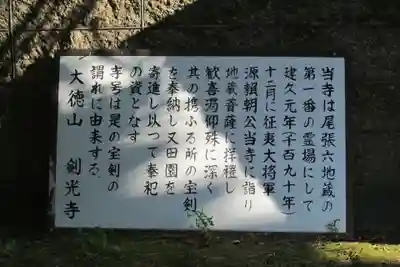 当寺は尾張六地蔵の
第一番の霊場にして
建久元年(千百九十年)
十二月に征夷大将軍
源頼朝公当寺に詣り
地蔵菩薩に拝禮し
歓喜渇仰殊に深く
其の携ふる所の宝剣
を奉納し又田園を
寄進し以つて奉祀
の資となす
寺号は是の宝剣の
謂れに由来する。
大徳山 剣光寺